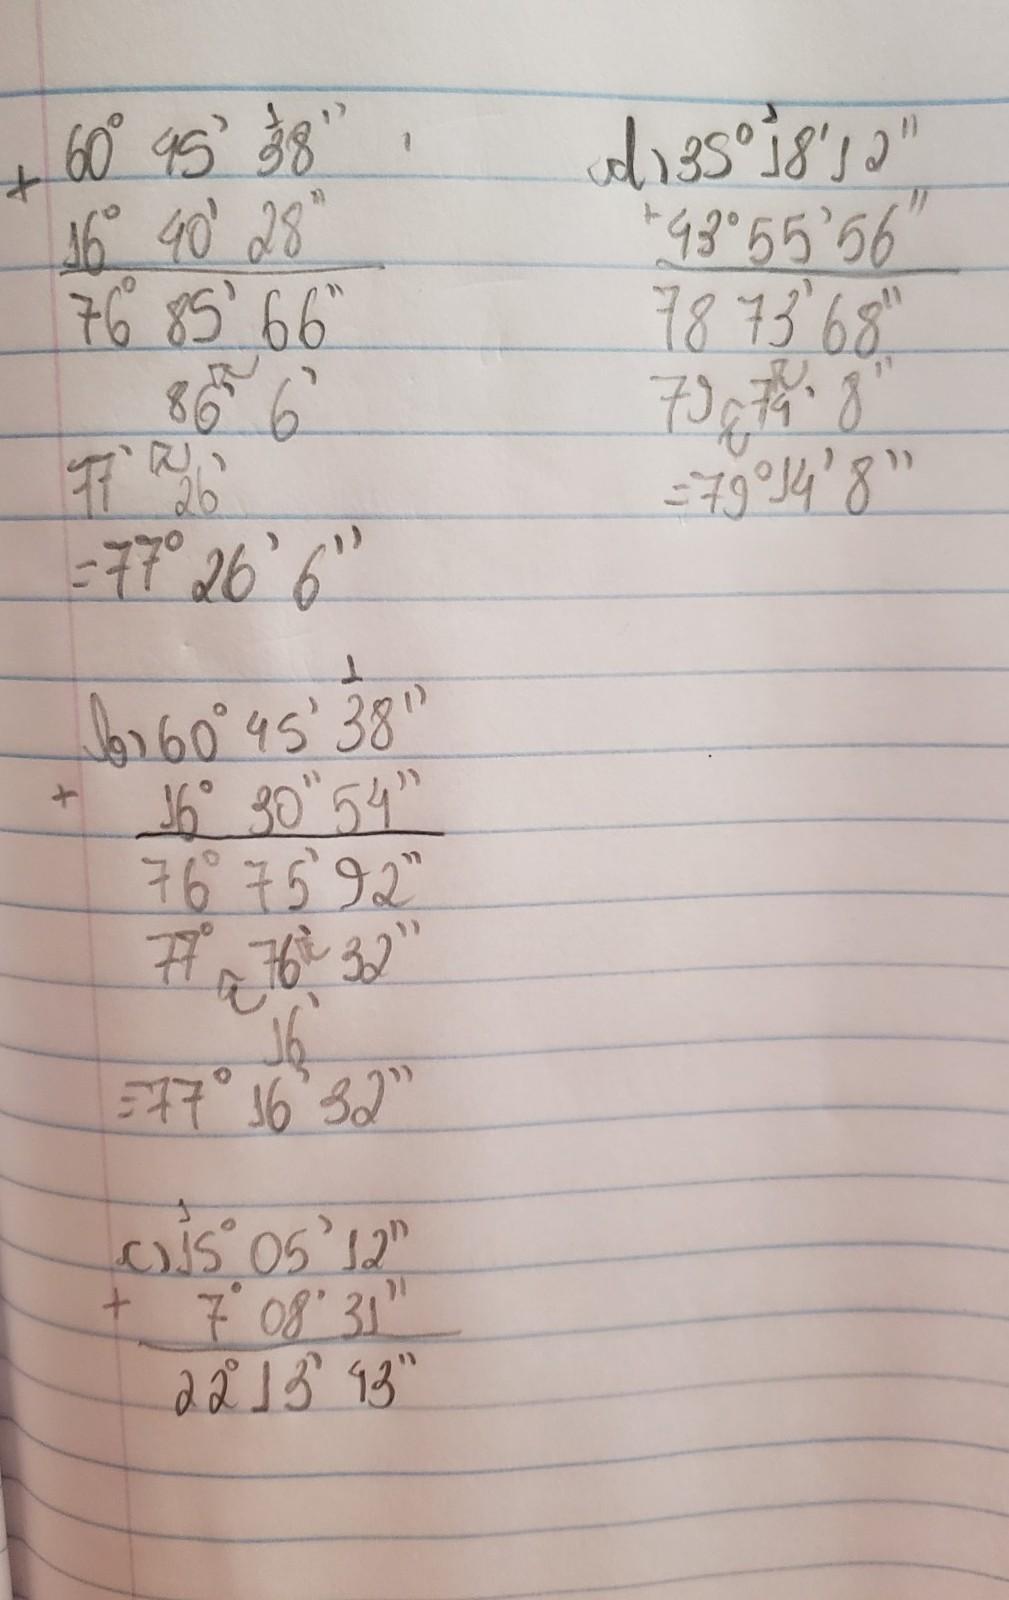 1
60° 45' 38"
+ 16° 40' 28"
76° 85' 66"
86' 6'
77' 26'
=77° 26' 6"
1
b) 60° 45' 38"
+ 16° 30" 54"
76° 75' 92"
77° 76' 32"
16'
=77° 16' 32"
1
c) 15° 05' 12"
+ 7° 08' 31"
22° 13' 43"
1
d) 35° 18' 12"
+ 43° 55' 56"
78 73' 68"
79 74' 8"
=79° 14' 8"